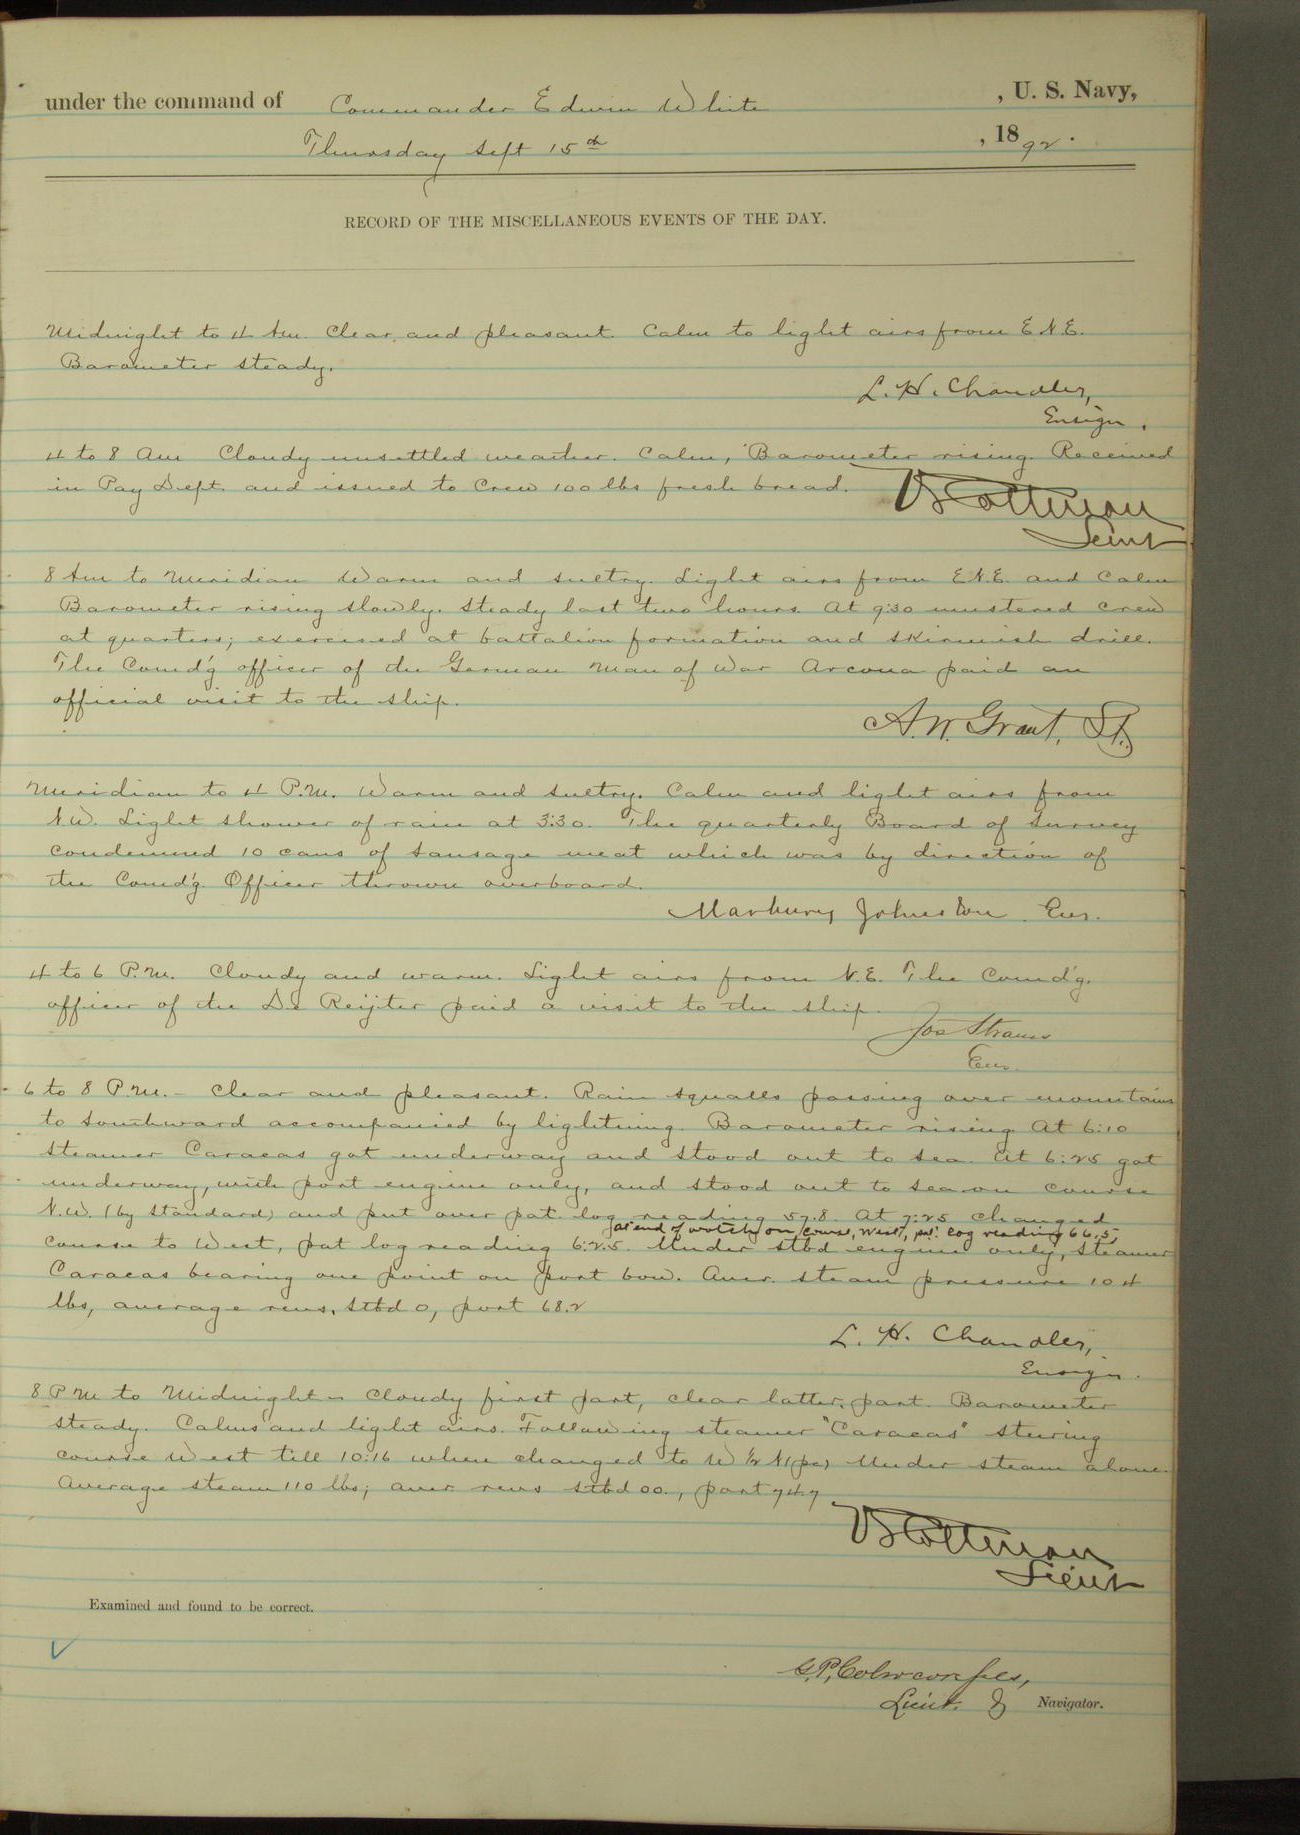 under the command of Commander Edwin White , U. S. Navy,
Thursday Sept 15th , 1892.
RECORD OF THE MISCELLANEOUS EVENTS OF THE DAY.
Midnight to 4 Am. Clear, and pleasant. Calm to light airs from E.N.E.
Barometer steady.
L. H. Chandler,
Ensign.
4 to 8 Am Cloudy unsettled weather. Calm, Barometer rising. Received
in Pay Dept. and issued to Crew 100 lbs fresh bread.
VS Cottman
Lieut
8 Am to Meridian Warm and sultry. Light airs from E.N.E. and Calm
Barometer rising slowly. Steady last two hours. At 9:30 mustered crew
at quarters; exercised at battalion formation and skirmish drill.
The Comd'g officer of the German Man of War Arcona paid an
official visit to the ship.
A. W. Grant, Lt.
Meridian to 4 P.M. Warm and sultry. Calm and light airs from
N.W. Light shower of rain at 3:30. The quarterly Board of Survey
condemned 10 cans of sausage meat which was by direction of
the Comd'g. Officer thrown overboard.
Marbury Johnston. Ens.
4 to 6 P.M. Cloudy and warm. Light airs from N.E. The Comd'g.
officer of the De Reijter paid a visit to the ship.
Jos Strauss
Ens.
6 to 8 P.M. - Clear and pleasant. Rain squalls passing over mountains
to southward accompanied by lightning. Barometer rising. At 6:10
steamer Caracas got underway and stood out to sea. At 6:25 got
underway, with port engine only, and stood out to sea on course
N.W. (by standard) and put over pat. log reading 57.8. At 7:25 changed
at end of watch on course, West, pat. log reading 66.5,
course to West, pat log reading 62.5. Under stbd engine only, steamer
Caracas bearing one point on port bow. Aver. steam pressure 104
lbs, average revs. stbd 0, port 68.2
L. H. Chandler,
Ensign.
8 PM to Midnight - Cloudy first part, clear latter part. Barometer
steady. Calms and light airs. Following steamer "Caracas" steering
course West till 10:16 when changed to W ½ N (pc) Under steam alone.
Average steam 110 lbs; aver revs stbd 00., port 74.7
VS Cottman
Lieut
Examined and found to be correct.
G.P. Colvocoresses,
Lieut. & Navigator.